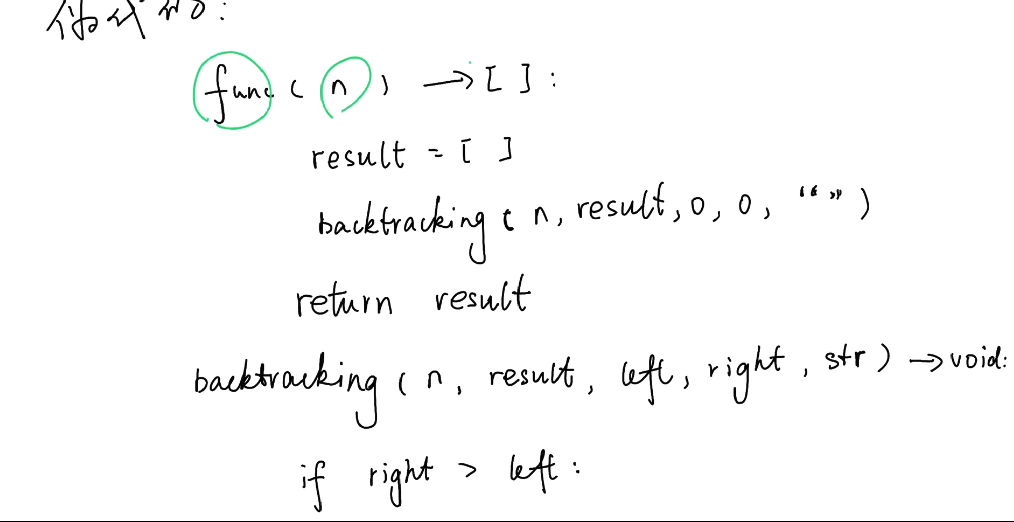 伪代码:
func(n) → [ ]:
result = [ ]
backtracking(n, result, 0, 0, “”)
return result
backtracking(n, result, left, right, str) → void:
if right > left: